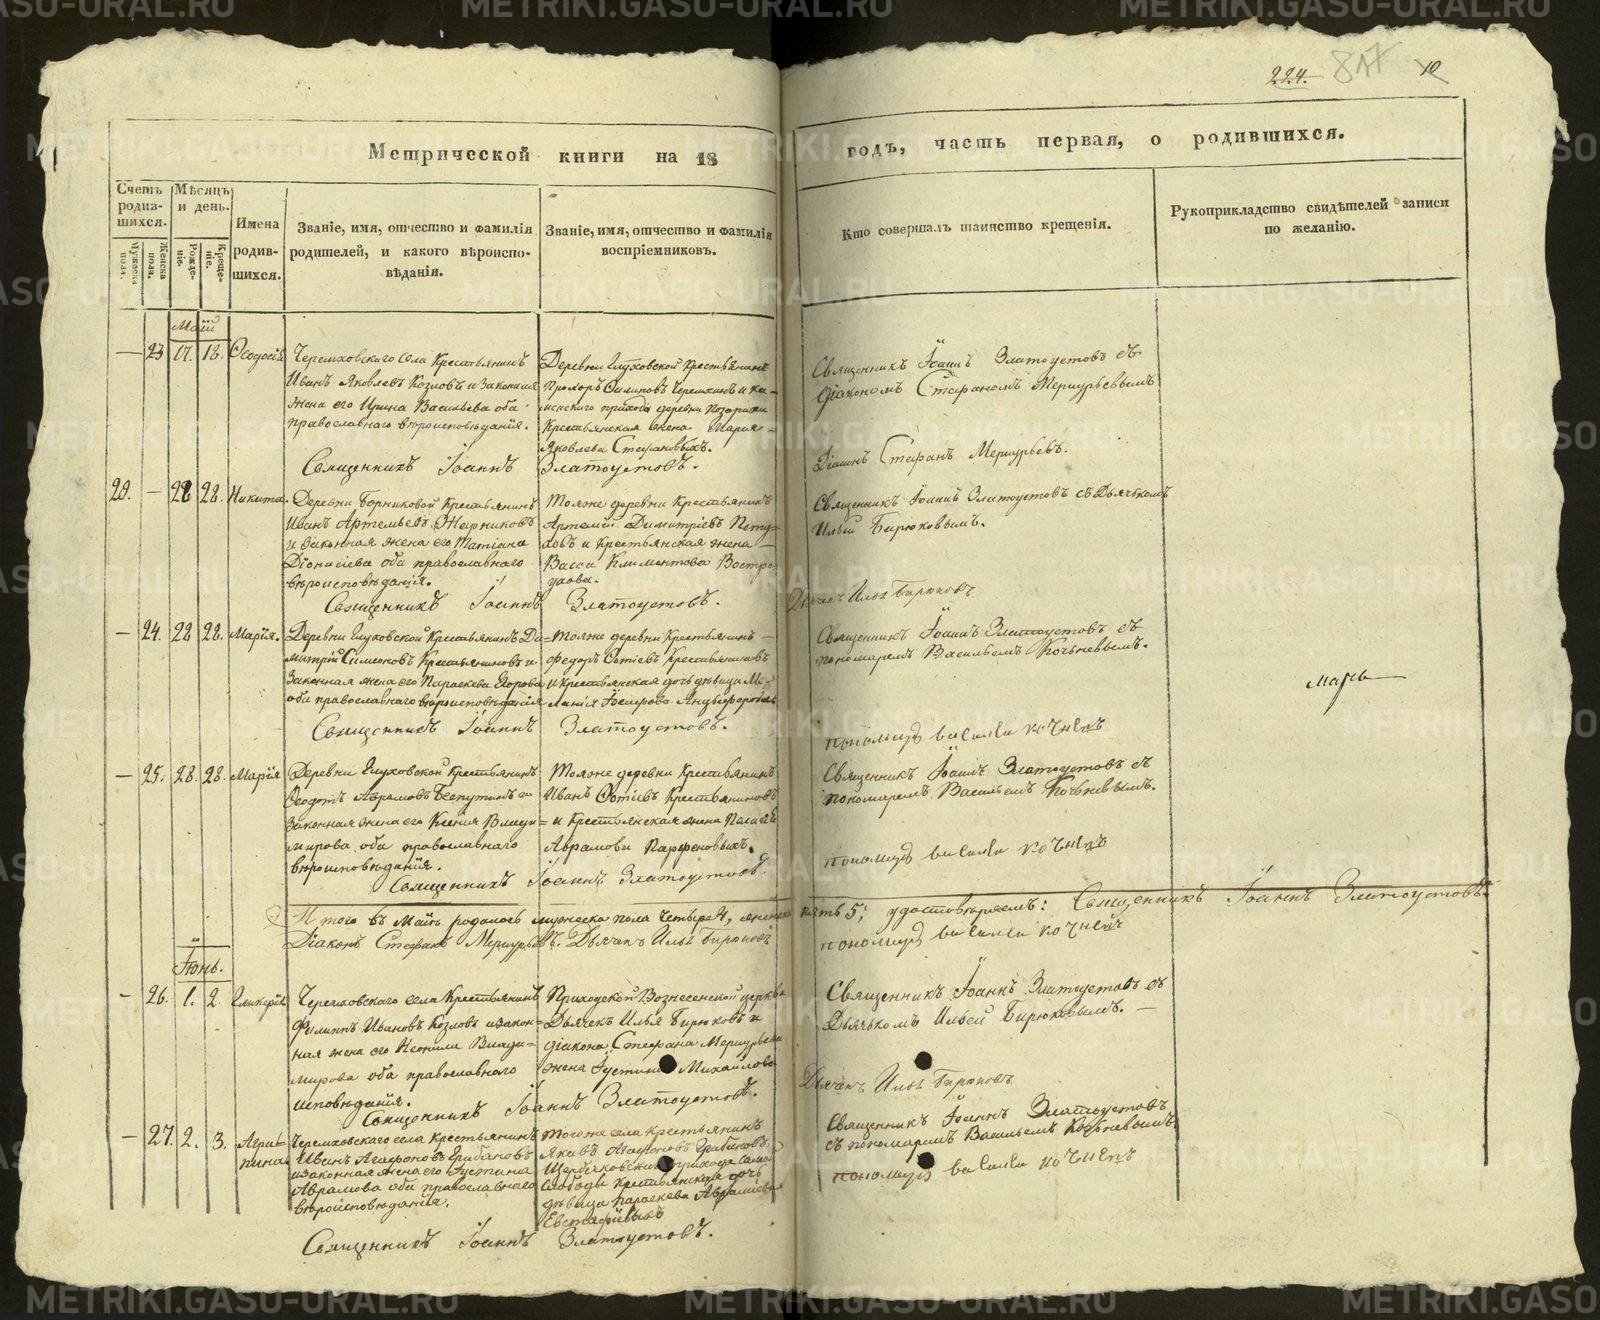 224. 817 10
Метрической книги на 18
годъ, часть первая, о родившихся.
Счетъ родив-шихся.
Мужеска пола.
Женска пола.
Мѣсяцъ и день.
Рожде-ніе.
Креще-ніе.
Имена родив-шихся.
Званіе, имя, отчество и фамилія
родителей, и какого вѣроиспо-
вѣданія.
Званіе, имя, отчество и фамилія
воспріемниковъ.
Кто совершалъ таинство крещенія.
Рукоприкладство свидѣтелей записи
по желанію.
Маій
— 23 17. 18. Ѳеодосій
Черемховскаго села Крестьянинъ
Иванъ Яковлевъ Козловъ и законная
жена его Ирина Васильева оба
православнаго вѣроисповѣданія.
Деревни Глуховской Крестьянинъ
Прохоръ Филиповъ Черемхинъ и ка-
менскаго прихода деревни
Крестьянская жена Марія
Яковлева Стефановыхъ.
Священникъ Іоаннъ Златоустовъ.
Священникъ Іоаннъ Златоустовъ съ
діакономъ Стефаномъ Меркурьевымъ
Діаконъ Стефанъ Меркурьевъ.
20. — 22 22. Никита.
Деревни Крестьянинъ
Иванъ Артемьевъ
и законная жена его Татіана
Діонисіева оба православнаго
вѣроисповѣданія.
Тояже деревни Крестьянинъ
Артемій Димитріевъ Пету-
ховъ и крестьянская жена
Васса Климентова Востро-
ухова.
Священникъ Іоаннъ Златоустовъ.
Священникъ Іоаннъ Златоустовъ съ Дьячкомъ
Ильей Бирюковымъ.
Дьячекъ Илья Бирюковъ.
— 24. 22 22. Марія.
Деревни Глуховской Крестьянинъ Ди-
митрій Симеоновъ Крестьяниновъ и
законная жена его Параскева Егорова
оба православнаго вѣроисповѣданія
Тояже деревни Крестьянинъ
Федоръ Фотіевъ Крестьяниновъ
и крестьянская дочь дѣвица Ме-
ланія Іосифова
Священникъ Іоаннъ Златоустовъ.
Священникъ Іоаннъ Златоустовъ съ
пономаремъ Васильемъ Кочневымъ.
пономарь василей кочневъ
— 25. 28. 28. Марія
Деревни Глуховской Крестьянинъ
Ѳеодотъ Аврамовъ Беспутинъ и
законная жена его Ксенія Влади-
мирова оба православнаго
вѣроисповѣданія.
Тояже деревни Крестьянинъ
Иванъ Фотіевъ Крестьяниновъ
и Крестьянская жена Пелагея
Аврамова Парфеновыхъ.
Священникъ Іоаннъ Златоустовъ.
Священникъ Іоаннъ Златоустовъ съ
пономаремъ Васильемъ Кочневымъ.
пономарь василей кочневъ
Итого въ Маіѣ родилось мужеска пола четыре 4, женска пять 5; удостовѣряемъ: Священникъ Іоаннъ Златоустовъ.
Діаконъ Стефанъ Меркурьевъ. Дьячекъ Илья Бирюковъ пономарь василей кочневъ
Іюнь.
— 26. 1. 2. Гликерія
Черемховскаго села Крестьянинъ
Филиппъ Ивановъ Козловъ и закон-
ная жена его Неонила Влади-
мирова оба православнаго
исповѣданія.
Приходской Вознесенской церкви
Дьячекъ Илья Бирюковъ и
діакона Стефана Меркурьева
жена Іустина Михайлова
Священникъ Іоаннъ Златоустовъ.
Священникъ Іоаннъ Златоустовъ съ
Дьячкомъ Ильей Бирюковымъ. —
Дьячекъ Илья Бирюковъ.
— 27. 2. 3. Агрип-
пина
Черемховскаго села Крестьянинъ
Иванъ Агафоновъ Грибановъ
и законная жена его Іустина
Аврамова оба православнаго
вѣроисповѣданія.
Тогоже села крестьянинъ
Яковъ Агафоновъ Грибановъ,
Щербаковскаго прихода самой
слободы крестьянская дочь
дѣвица Параскева
Евстафіевыхъ
Священникъ Іоаннъ Златоустовъ.
Священникъ Іоаннъ Златоустовъ
съ пономаремъ Васильемъ Кочневымъ.
пономарь василей кочневъ
METRIKI.GASU-URAL.RU